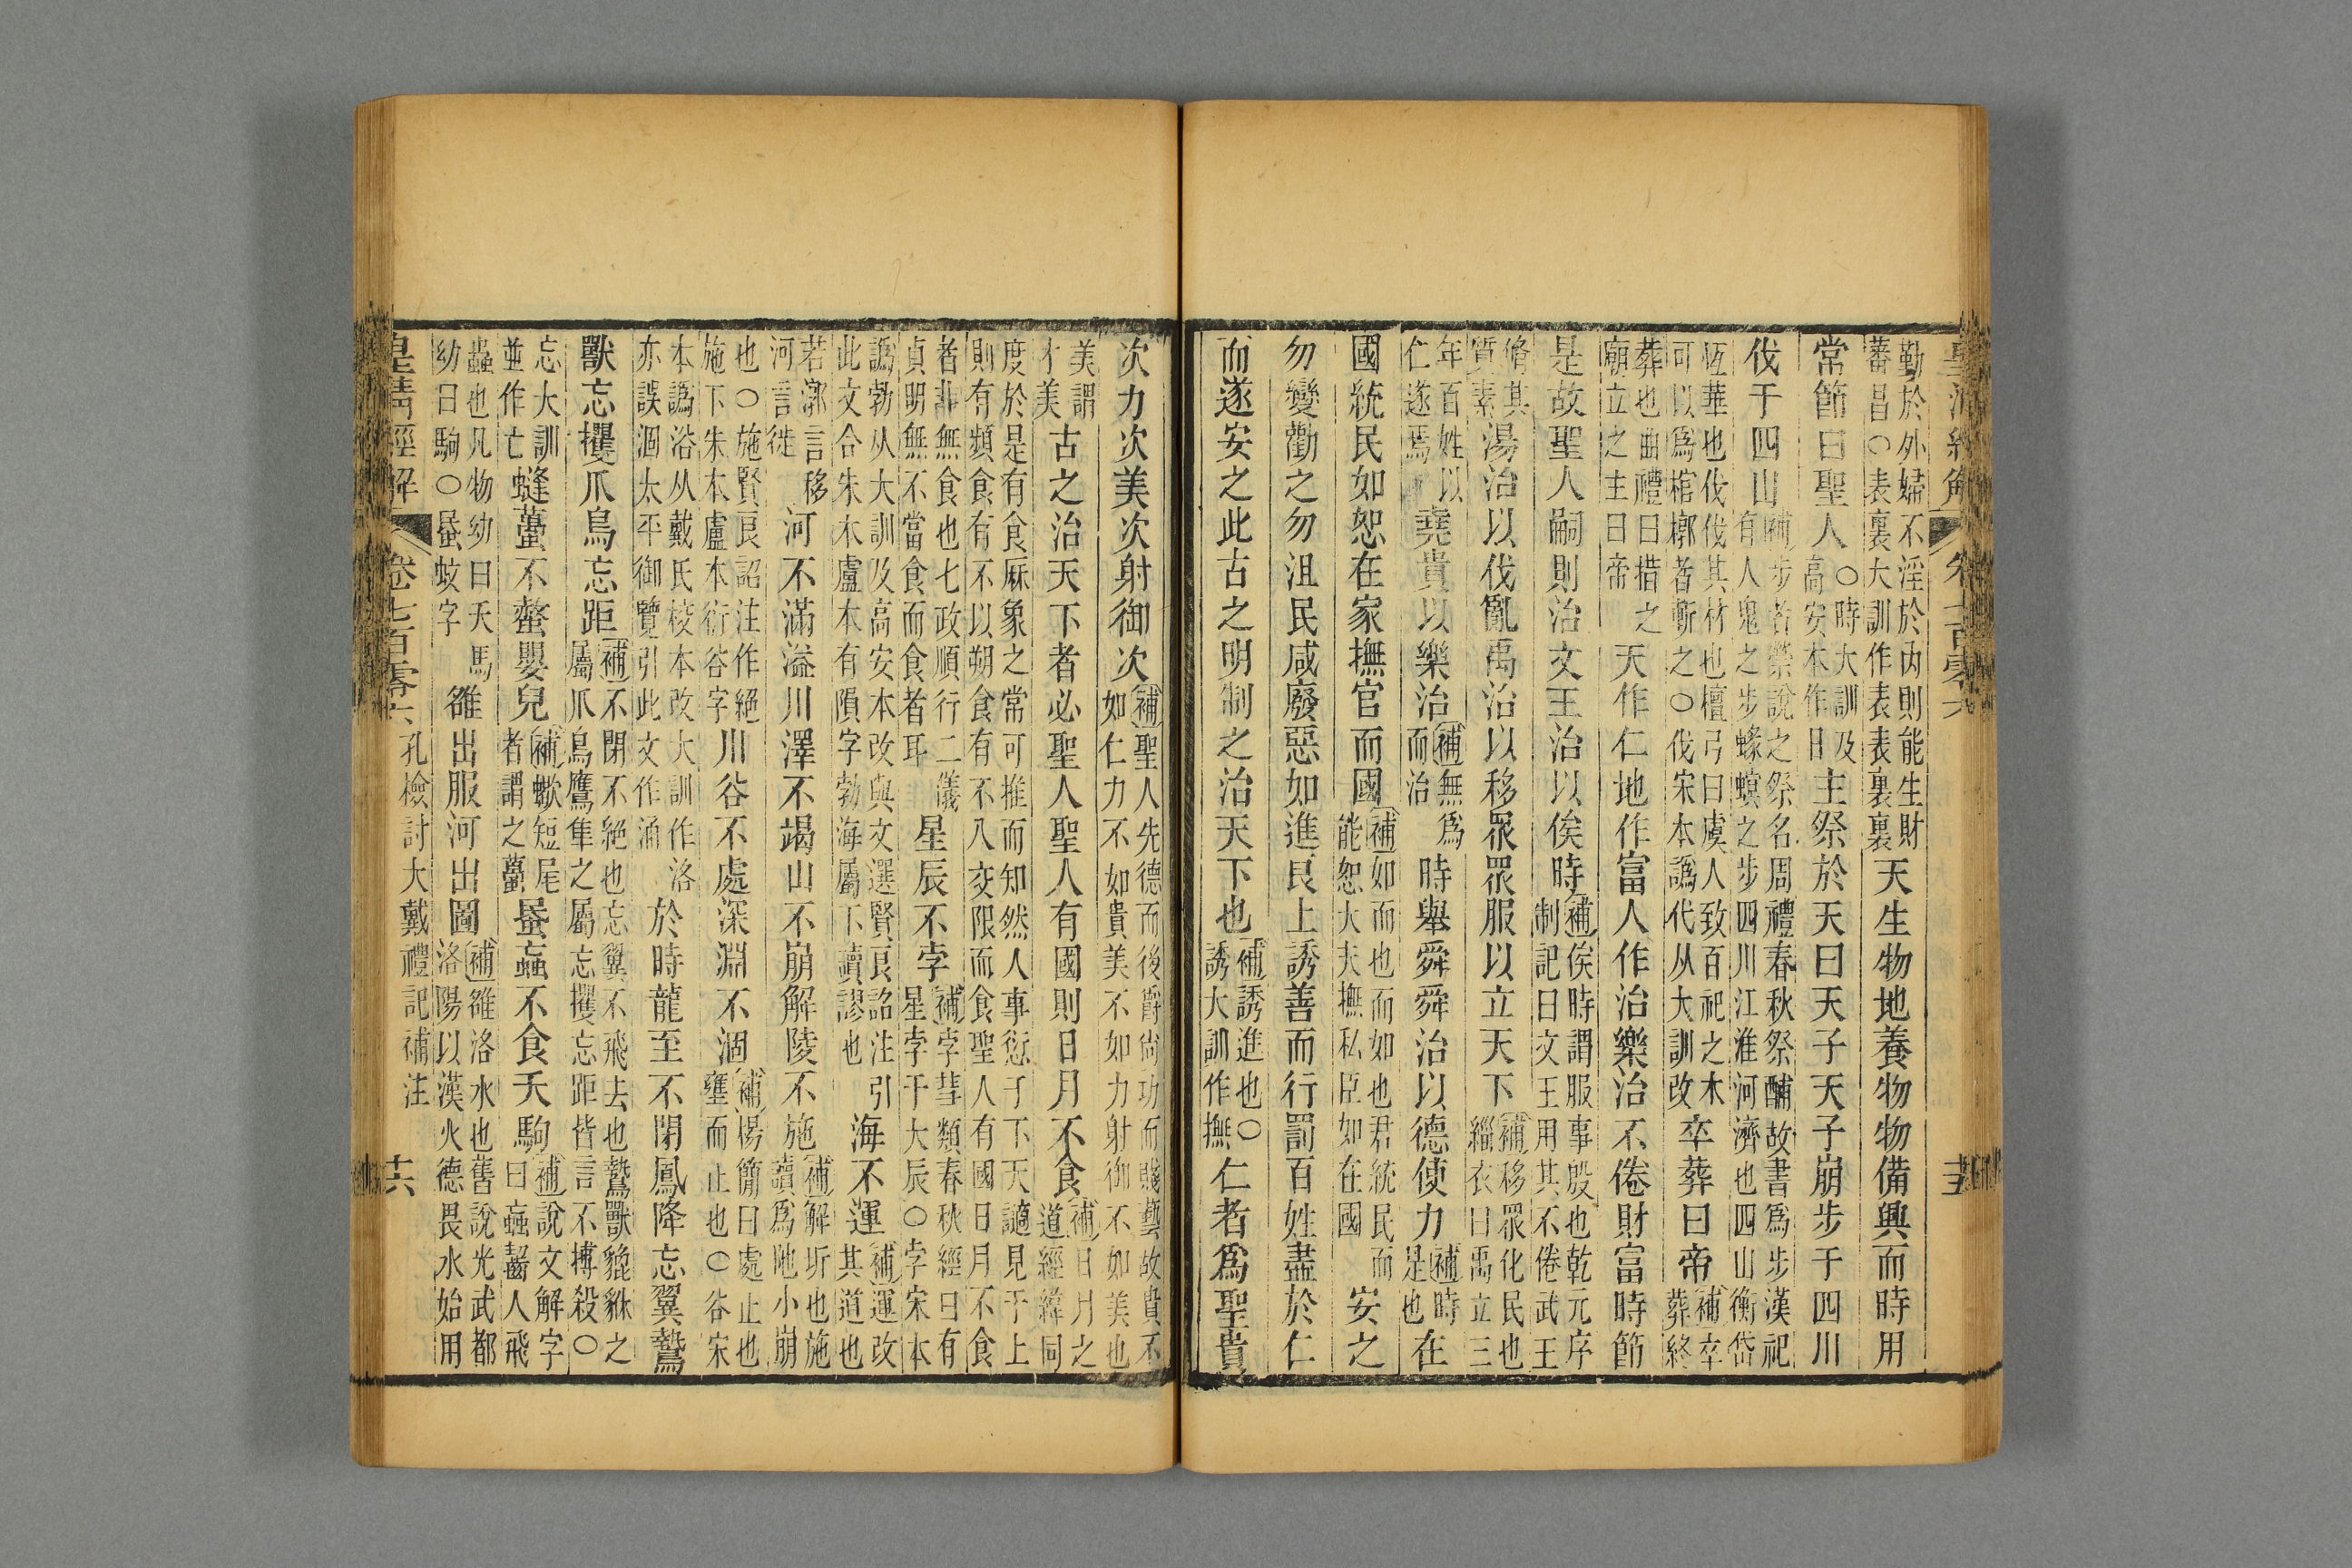 皇清經解 卷七百零六
勤於外婦不淫於内則能生財
蕃昌○表裏大訓作表表裏裏
天生物地養物物備興而時用
常節曰聖人
○時大訓及
高安本作日
主祭於天曰天子天子崩步于四川
伐于四山
補步者祭說之祭名周禮春秋祭酺故書爲步漢祀
有人鬼之步蝝螟之步四川江淮河濟也四山衡岱
恆華也伐伐其材也檀弓曰虞人致百祀之木
可以爲棺槨者斬之○伐宋本譌代从大訓改
卒葬曰帝
補卒
葬終
葬也曲禮曰措之
廟立之主曰帝
天作仁地作富人作治樂治不倦財富時節
是故聖人嗣則治文王治以俟時
補俟時謂服事殷也乾元序
制記曰文王用其不倦武王
脩其
質素
湯治以伐亂禹治以移眾眾服以立天下
補移眾化民也
緇衣曰禹立三
年百姓以
仁遂焉
堯貴以樂治
補無爲
而治
時舉舜舜治以德使力
補時
是也
在
國統民如恕在家撫官而國
補如而也而如也君統民而
能恕大夫撫私臣如在國
安之
勿變勸之勿沮民咸廢惡如進良上誘善而行罰百姓盡於仁
而遂安之此古之明制之治天下也
補誘進也○
誘大訓作撫
仁者爲聖貴
次力次美次射御次
補聖人先德而後爵尚功而賤藝故貴不
如仁力不如貴美不如力射御不如美也
美謂
才美
古之治天下者必聖人聖人有國則日月不食
補日月之
道經緯同
度於是有食厤象之常可推而知然人事愆于下天讁見于上
則有頻食有不以朔食有不八交限而食聖人有國日月不食
者非無食也七政順行二儀
貞明無不當食而食者耳
星辰不孛
補孛彗類春秋經曰有
星孛于大辰○孛宋本
譌勃从大訓及高安本改與文選賢良詔注引
此文合朱本盧本有隕字勃海屬下讀謬也
海不運
補運改
其道也
若漷言移
河言徙
河不滿溢川澤不竭山不崩解陵不施
補解坼也施
讀爲阤小崩
也○施賢良詔注作絕
施下朱本盧本衍谷字
川谷不處深淵不涸
補楊簡曰處止也
壅而止也○谷宋
本譌浴从戴氏校本改大訓作洛
亦誤涸太平御覽引此文作涌
於時龍至不閉鳳降忘翼鷙
獸忘攫爪鳥忘距
補不閉不絕也忘翼不飛去也鷙獸貔貅之
屬爪鳥鷹隼之屬忘攫忘距皆言不搏殺○
忘大訓
並作亡
蜂蠆不螫嬰兒
補蠍短尾
者謂之蠆
蟁蝱不食夭駒
補說文解字
曰蝱齧人飛
蟲也凡物幼曰夭馬
幼曰駒○蟁蚊字
雒出服河出圖
補雒洛水也舊說光武都
洛陽以漢火德畏水始用
皇清經解 卷七百零六 孔檢討大戴禮記補注 十六